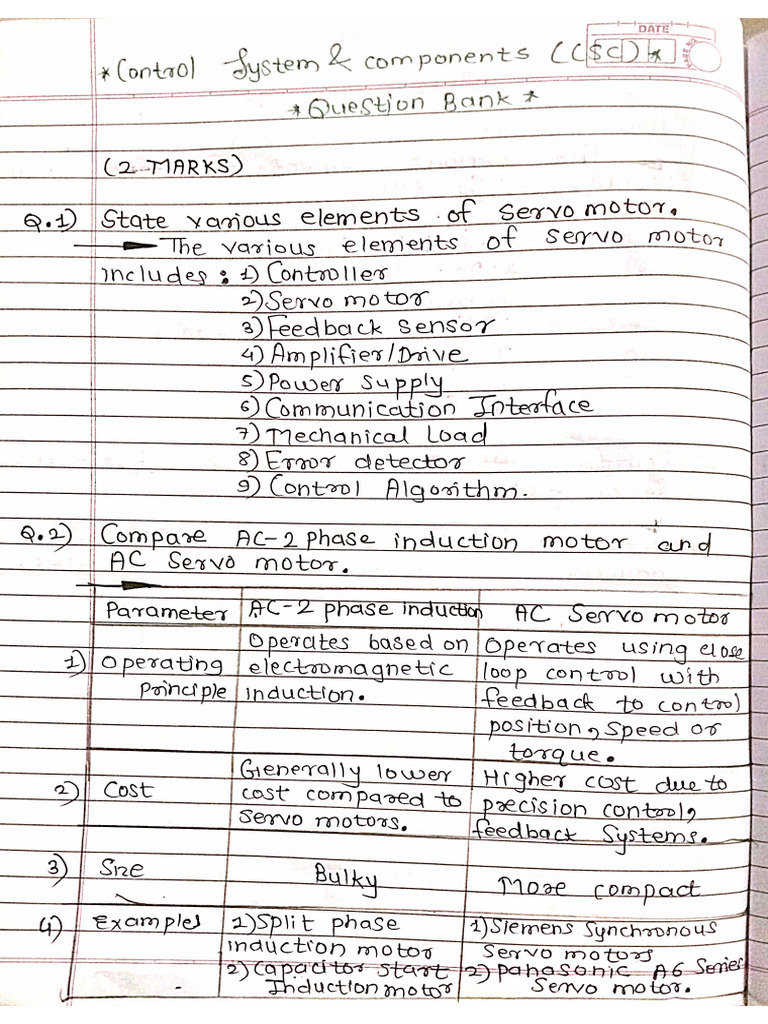 DATE
PAGE NO
* Control System & components (CSC) *
* Question Bank *
(2 MARKS)
Q.1) State various elements of servo motor.
The various elements of servo motor
includes: 1) Controller
2) Servo motor
3) Feedback sensor
4) Amplifier/Drive
5) Power supply
6) Communication Interface
7) Mechanical Load
8) Error detector
9) Control Algorithm.
Q.2) Compare AC-2 phase induction motor and
AC Servo motor.
Parameter AC-2 phase induction AC Servo motor
1) Operating principle
Operates based on
electromagnetic
induction.
Operates using close
loop control with
feedback to control
position, speed or
torque.
2) Cost
Generally lower
cost compared to
servo motors.
Higher cost due to
precision control,
feedback systems.
3) Size Bulky More compact
4) Examples
1) Split phase
induction motor
2) Capacitor start
Induction motor
1) Siemens Synchronous
Servo motors
2) panasonic A6 Series
Servo motor.